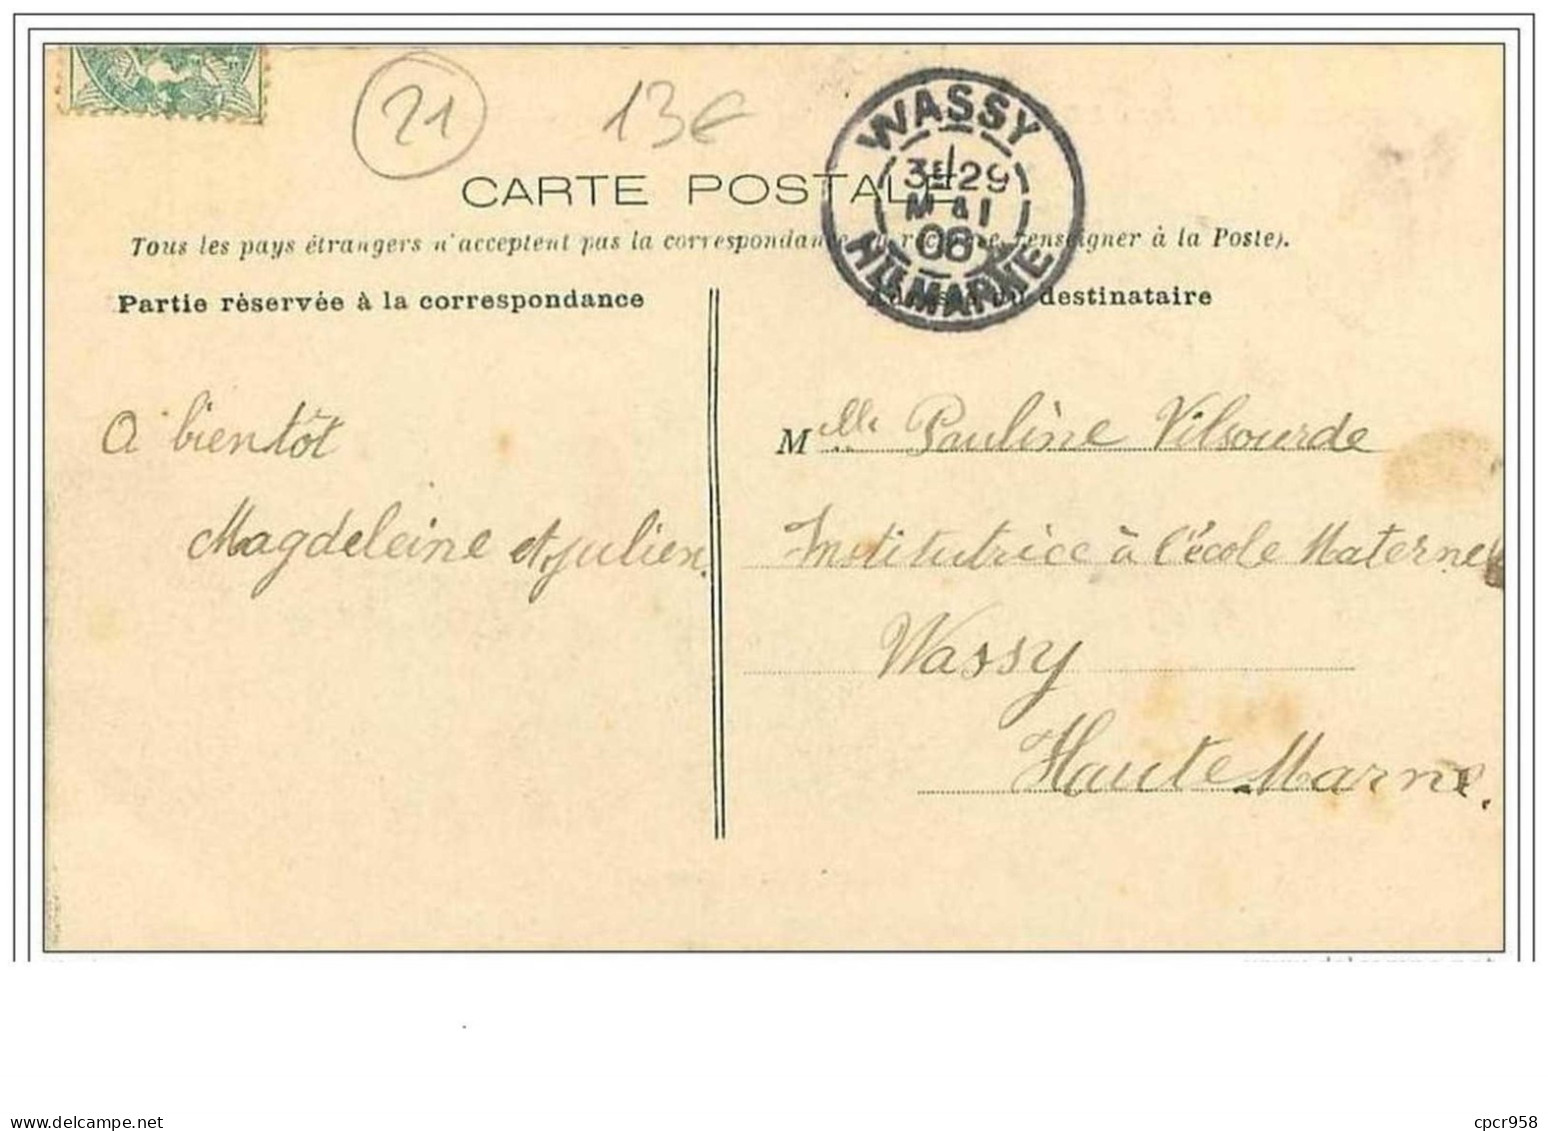 21
13€
WASSY
3E 29
MAI
08
HTE MARNE
CARTE POSTALE
Tous les pays étrangers n'acceptent pas la correspondance renseigner à la Poste).
Partie réservée à la correspondance
Adresse du destinataire
A bientôt
Magdeleine et Julien.
Melle Pauline Vilsourde
Institutrice à l'école Maternelle
Wassy
Haute Marne.
www.delcampe.net
cpcr958